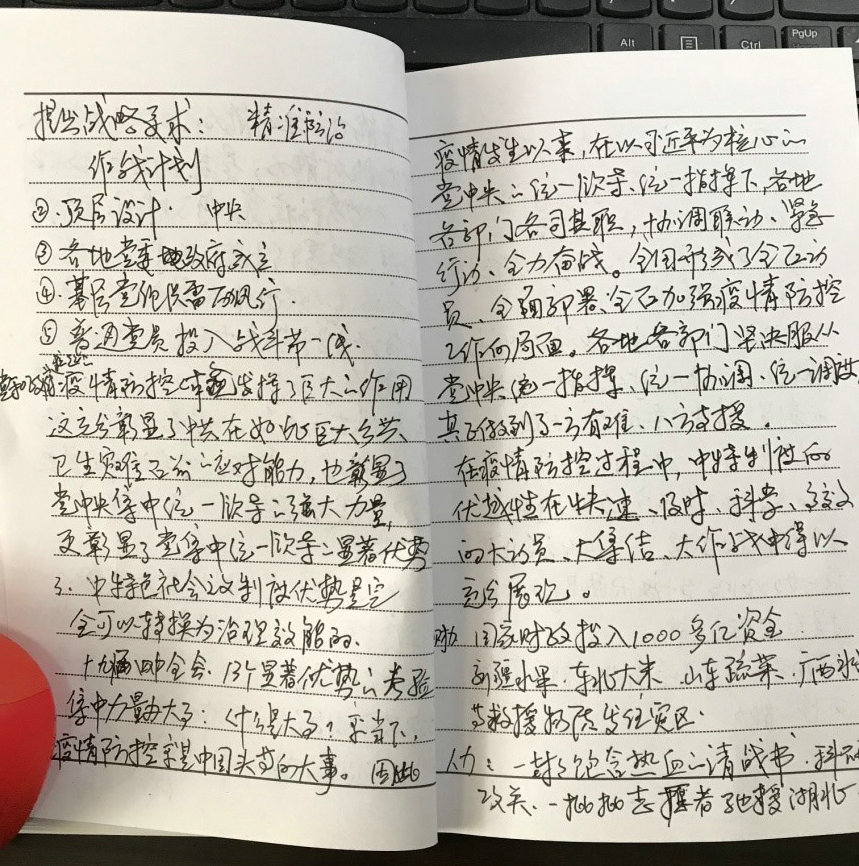 Alt
Ctrl
PgUp
提出战略要求： 精准防治
作战计划
②.顶层设计. 中央
③各地党委地政府成立
④.基层党组织雷厉风行.
⑤普通党员投入战斗第一线.
疫情防控中 发挥了巨大的作用
这充分彰显了中共在如此巨大公共
卫生灾难面前的应对能力,也彰显了
党中央集中统一领导的强大力量,
更彰显了党集中统一领导的显著优势
3.中特色社会主义制度优势是完
全可以转换为治理效能的.
十九届四中全会.13个显著优势的考验
集中力量办大事:什么是大事?在当下,
疫情防控就是中国头等的大事。因此
疫情发生以来,在以习近平为核心的
党中央的统一领导、统一指挥下,各地
各部门各司其职,协调联动、紧急
行动、全力奋战。全国形成了全面动
员、全面部署、全面加强疫情防控
工作的局面。各地各部门坚决服从
党中央统一指挥、统一协调、统一调度
真正做到了一方有难、八方支援。
在疫情防控过程中,中特制度的
优越性在快速、及时、科学、高效
的大动员、大集结、大作战中得以
充分展现。
财力 国家财政投入1000多亿资金
新疆水果.东北大米 山东蔬菜.广西水
等救援物质发往灾区.
人力:一封封饱含热血的请战书.科研
攻关.一批批志愿者驰援湖北